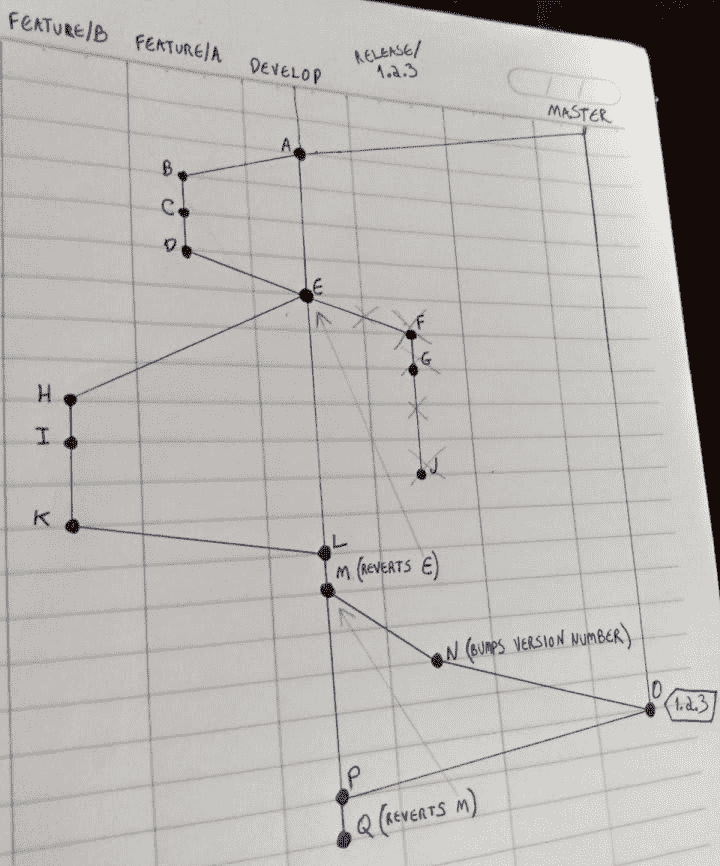 FEATURE/B
FEATURE/A
DEVELOP
RELEASE/
1.2.3
MASTER
A
B
C
D
E
F
G
H
I
J
K
L
M (REVERTS E)
N (BUMPS VERSION NUMBER)
O
1.2.3
P
Q (REVERTS M)